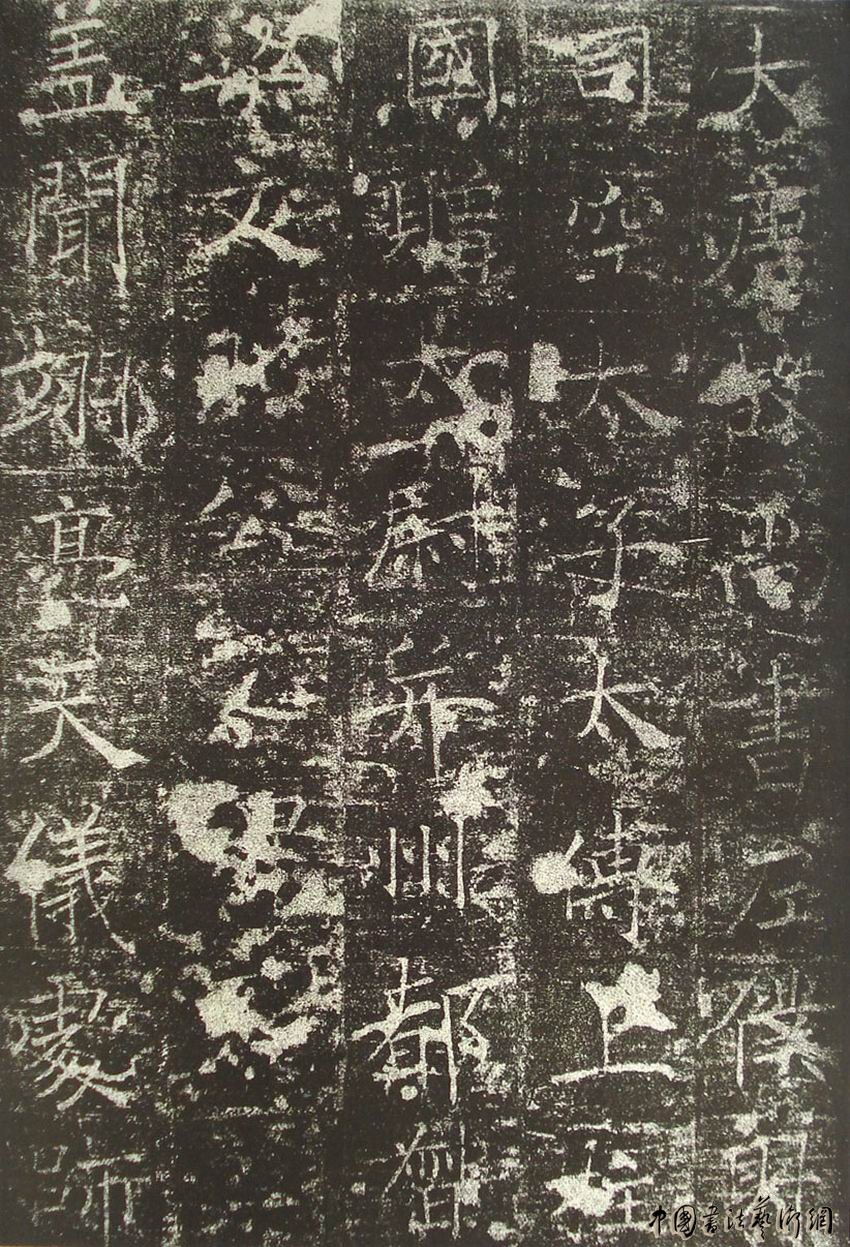 大唐故尚書左僕射
司空太子太傅上柱
國贈太尉并州都督
梁文昭公
盖聞翊亮英儀跡
中國書法藝術網